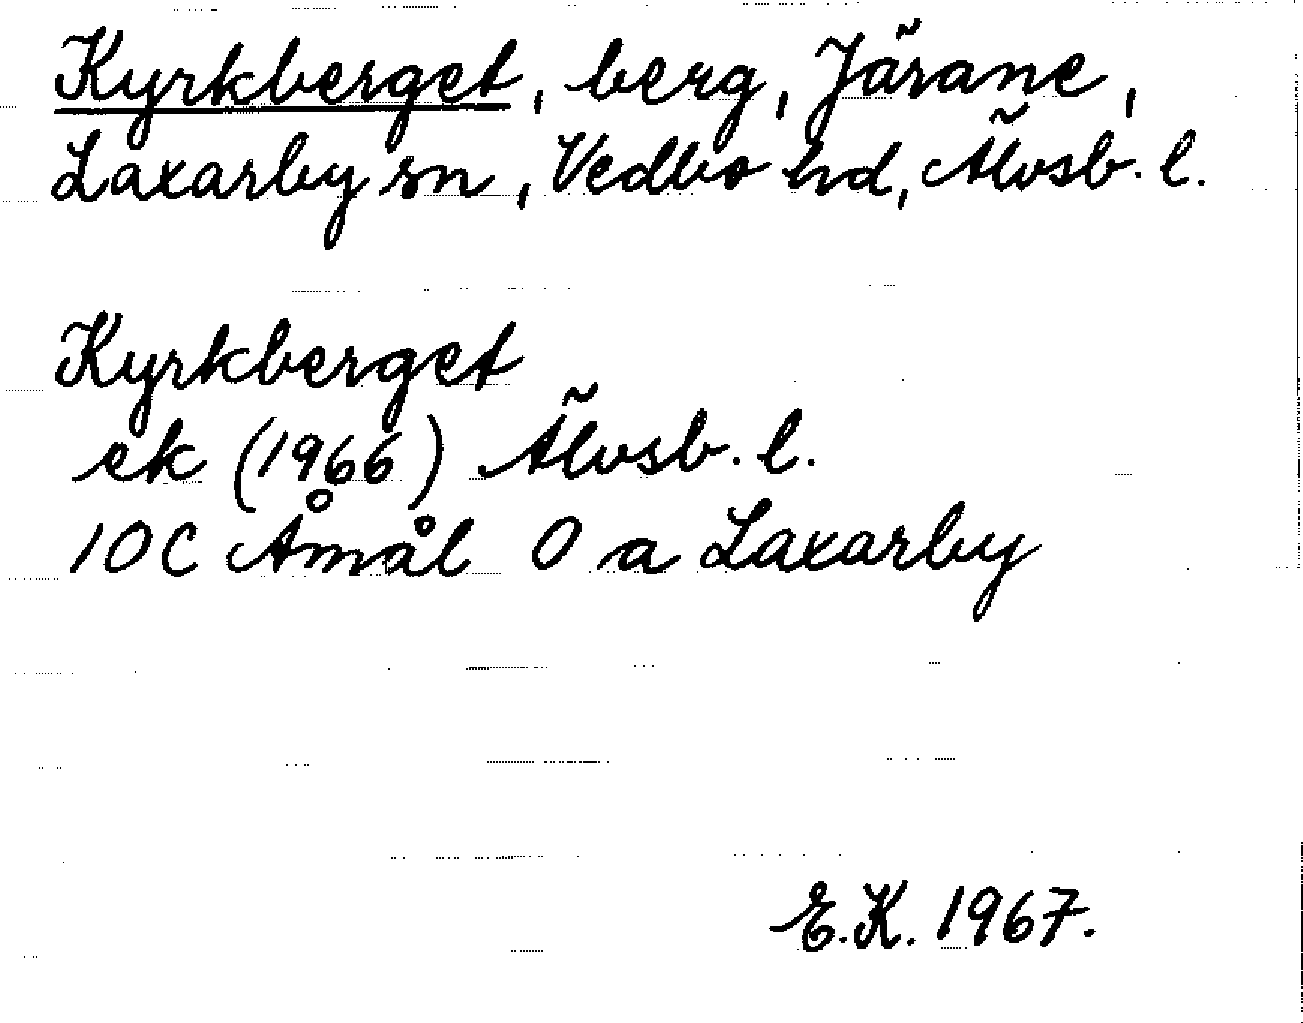 Kyrkberget, berg, Järane,
Laxarby sn, Vedbo hd, Älvsb. l.
Kyrkberget
ek (1966) Älvsb. l.
10C Åmål 0 a Laxarby
E.K. 1967.